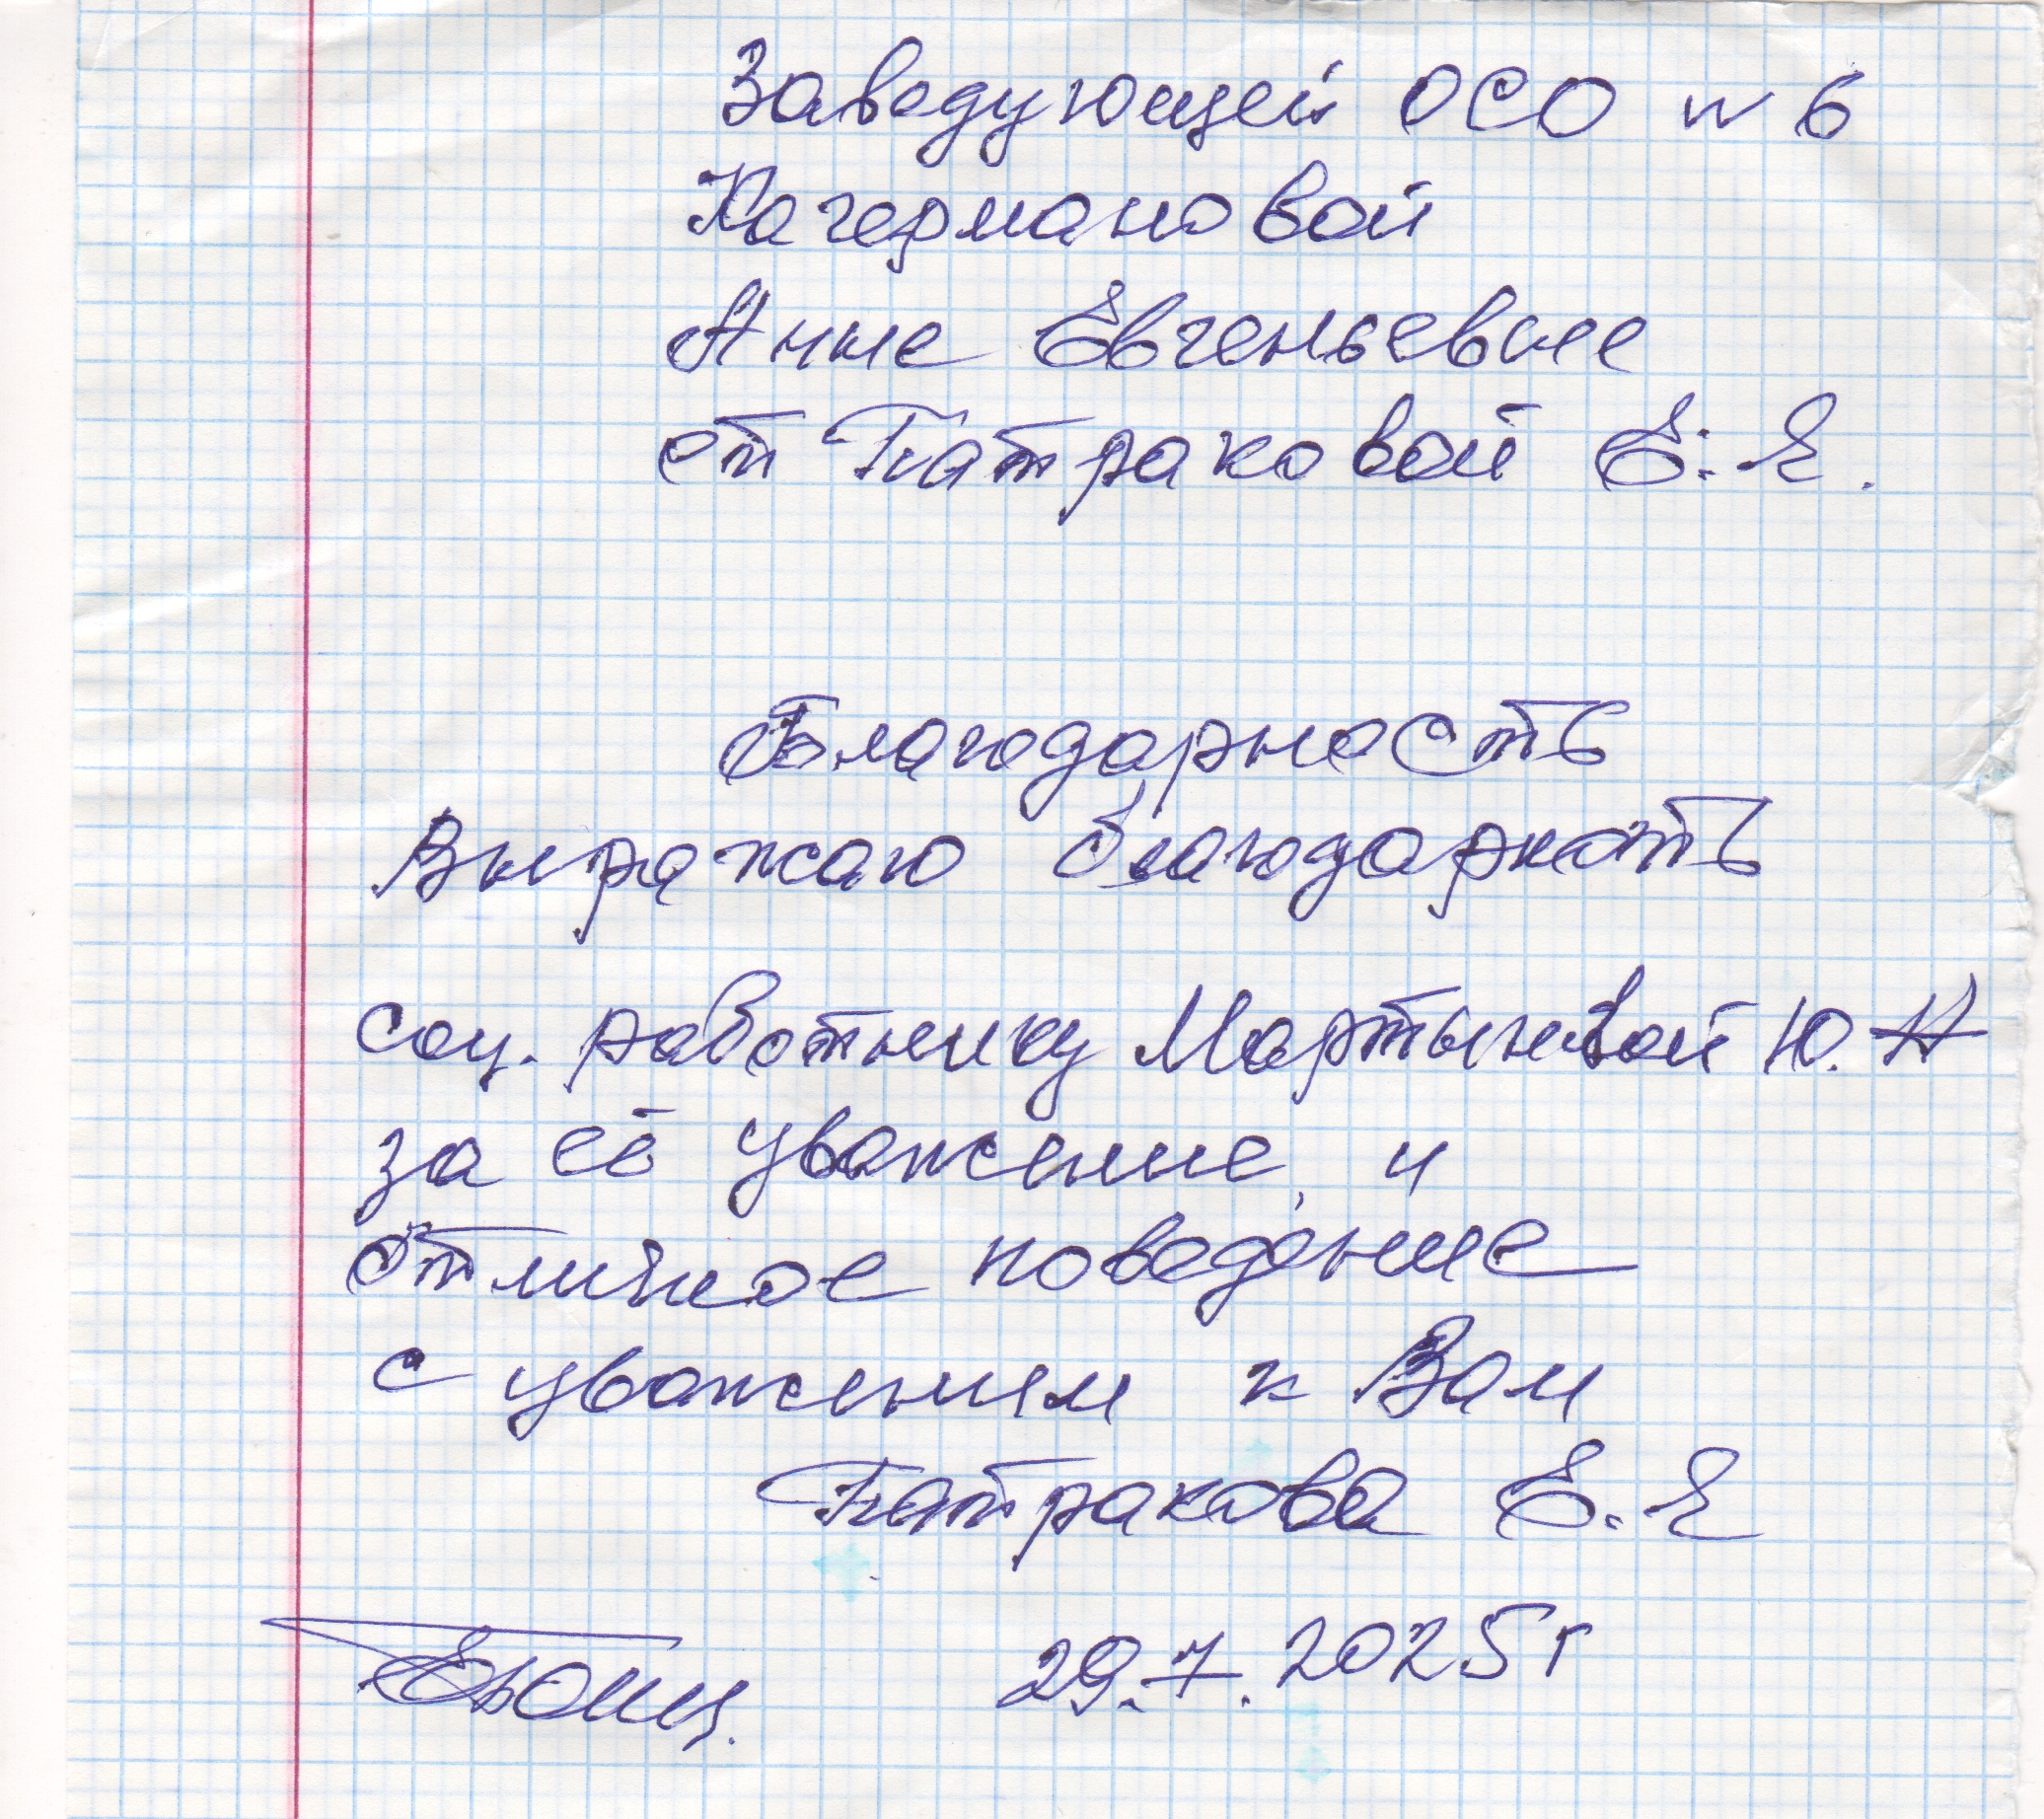 Заведующей ОСО № 6
Кагермановой
Анне Евгеньевне
от Патраковой Е. Я.
Благодарность
Выражаю благодарность
соц. работнику Мартыновой Ю. Н
за её уважение, и
отличное поведение
с уважением к Вам
Патракова Е. Я
29.7.2025 г